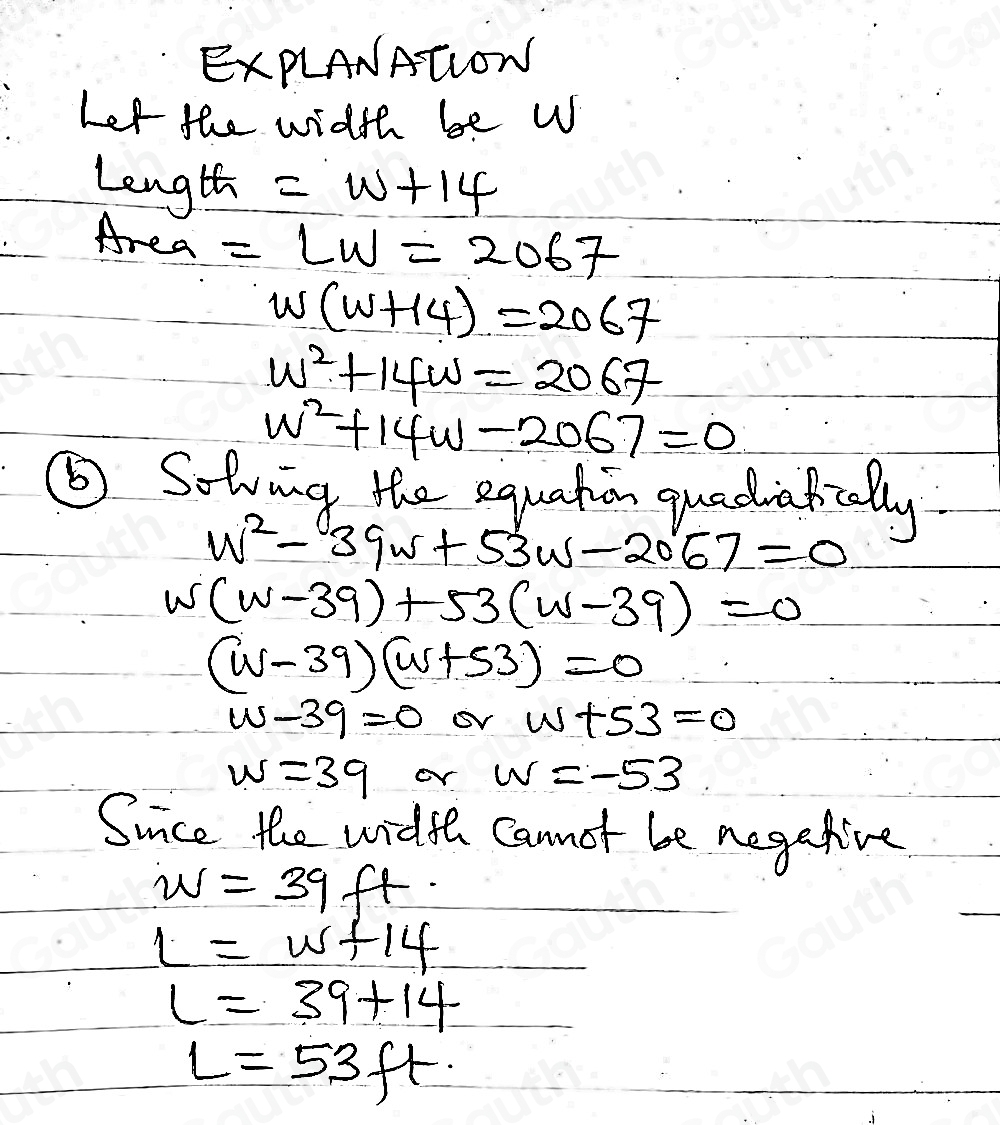 EXPLANATION
Let the width be W
Length = W+14
Area = LW = 2067
W(W+14) = 2067
W²+14W = 2067
W²+14W-2067=0
(b) Solving the equation quadratically.
W²-39W+53W-2067=0
W(W-39)+53(W-39)=0
(W-39)(W+53)=0
W-39=0 or W+53=0
W=39 or W=-53
Since the width cannot be negative
W = 39 ft.
L = W+14
L = 39+14
L = 53 ft.